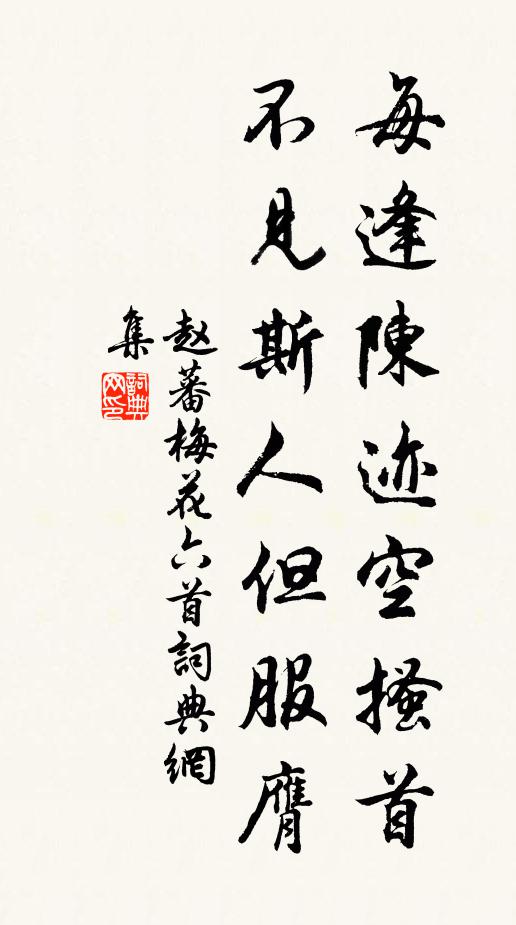 每逢陳迹空搔首
不見斯人但服膺
赵蕃梅花六首詞典網
集
詞典
网印